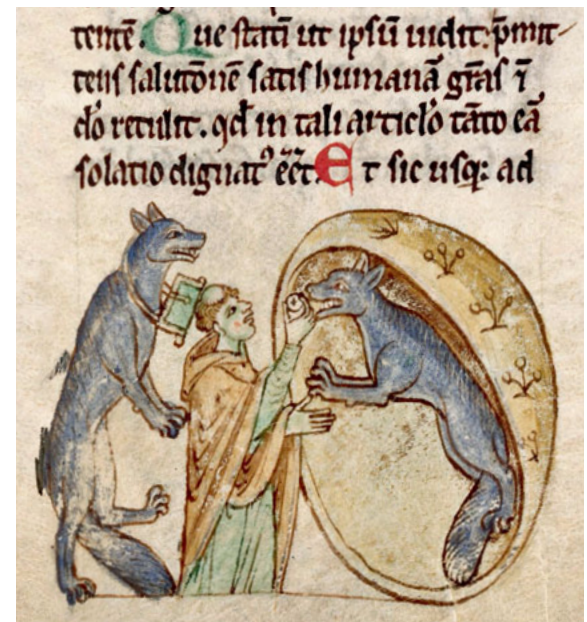 tentē. Que statī ut ipsū uidit: p̄mit-
tens salutōnē satis humanā grās
dō retulit. qđ in tali articl̓o tāto eā
solatio dignatꝰ eēt. Et sic usq; ad